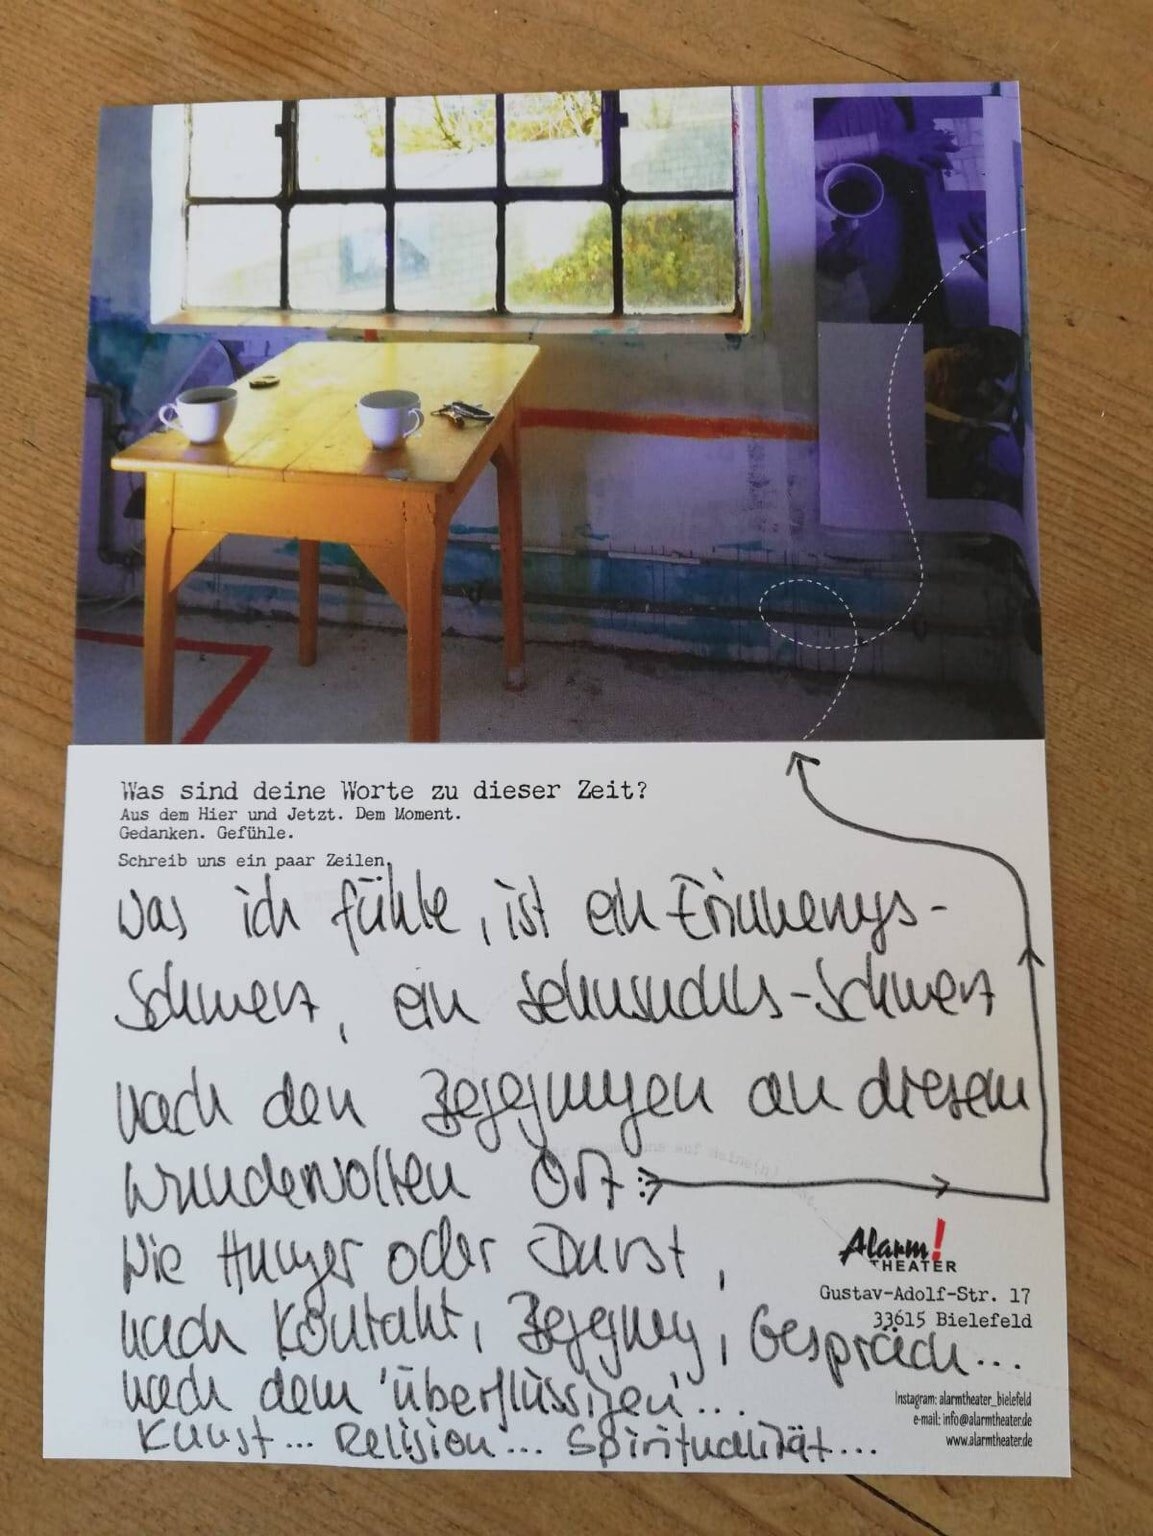 Was sind deine Worte zu dieser Zeit?
Aus dem Hier und Jetzt. Dem Moment.
Gedanken. Gefühle.
Schreib uns ein paar Zeilen.
Was ich fühle, ist ein Erinnerungs-
Schmerz, ein Sehnsuchts-Schmerz
nach den Begegnungen an diesem
wundervollen Ort:
Wie Hunger oder Durst,
nach Kontakt, Begegnung, Gespräch...
nach dem 'überflüssigen'...
Kunst... Religion... Spiritualität...
Alarm!
THEATER
Gustav-Adolf-Str. 17
33615 Bielefeld
Instagram: alarmtheater_bielefeld
e-mail: info@alarmtheater.de
www.alarmtheater.de